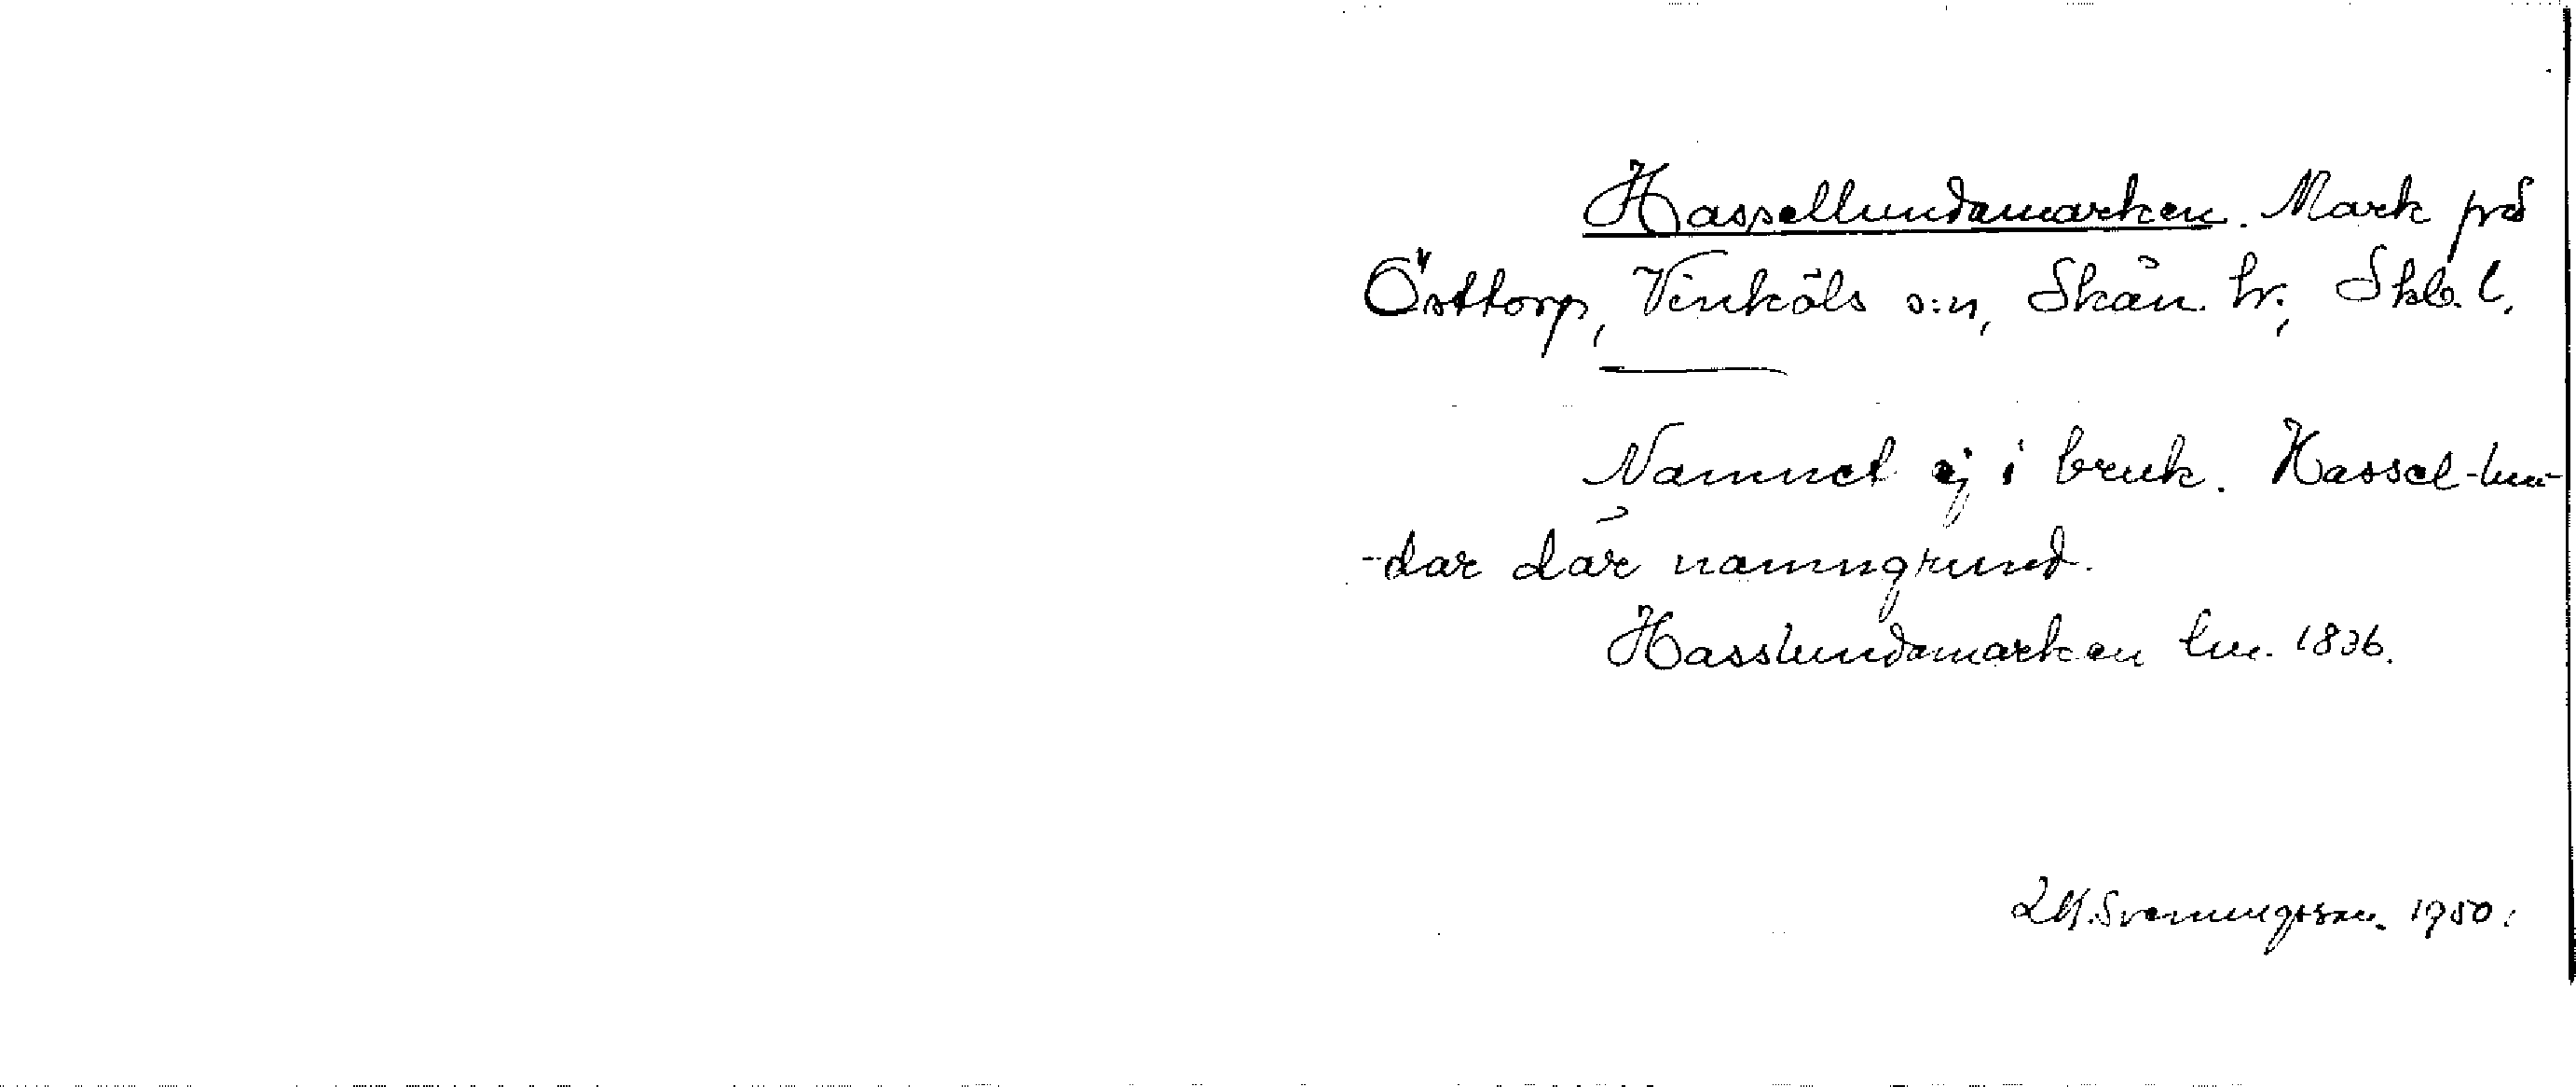 Hassellundamarken. Mark på
Östtorp, Vinköls s:n, Skån. hr., Skb. l.
Namnet ej i bruk. Hassel-lun-
-dar där namngrund.
Hasslundamarken lm. 1836.
Svenungsson. 1950.